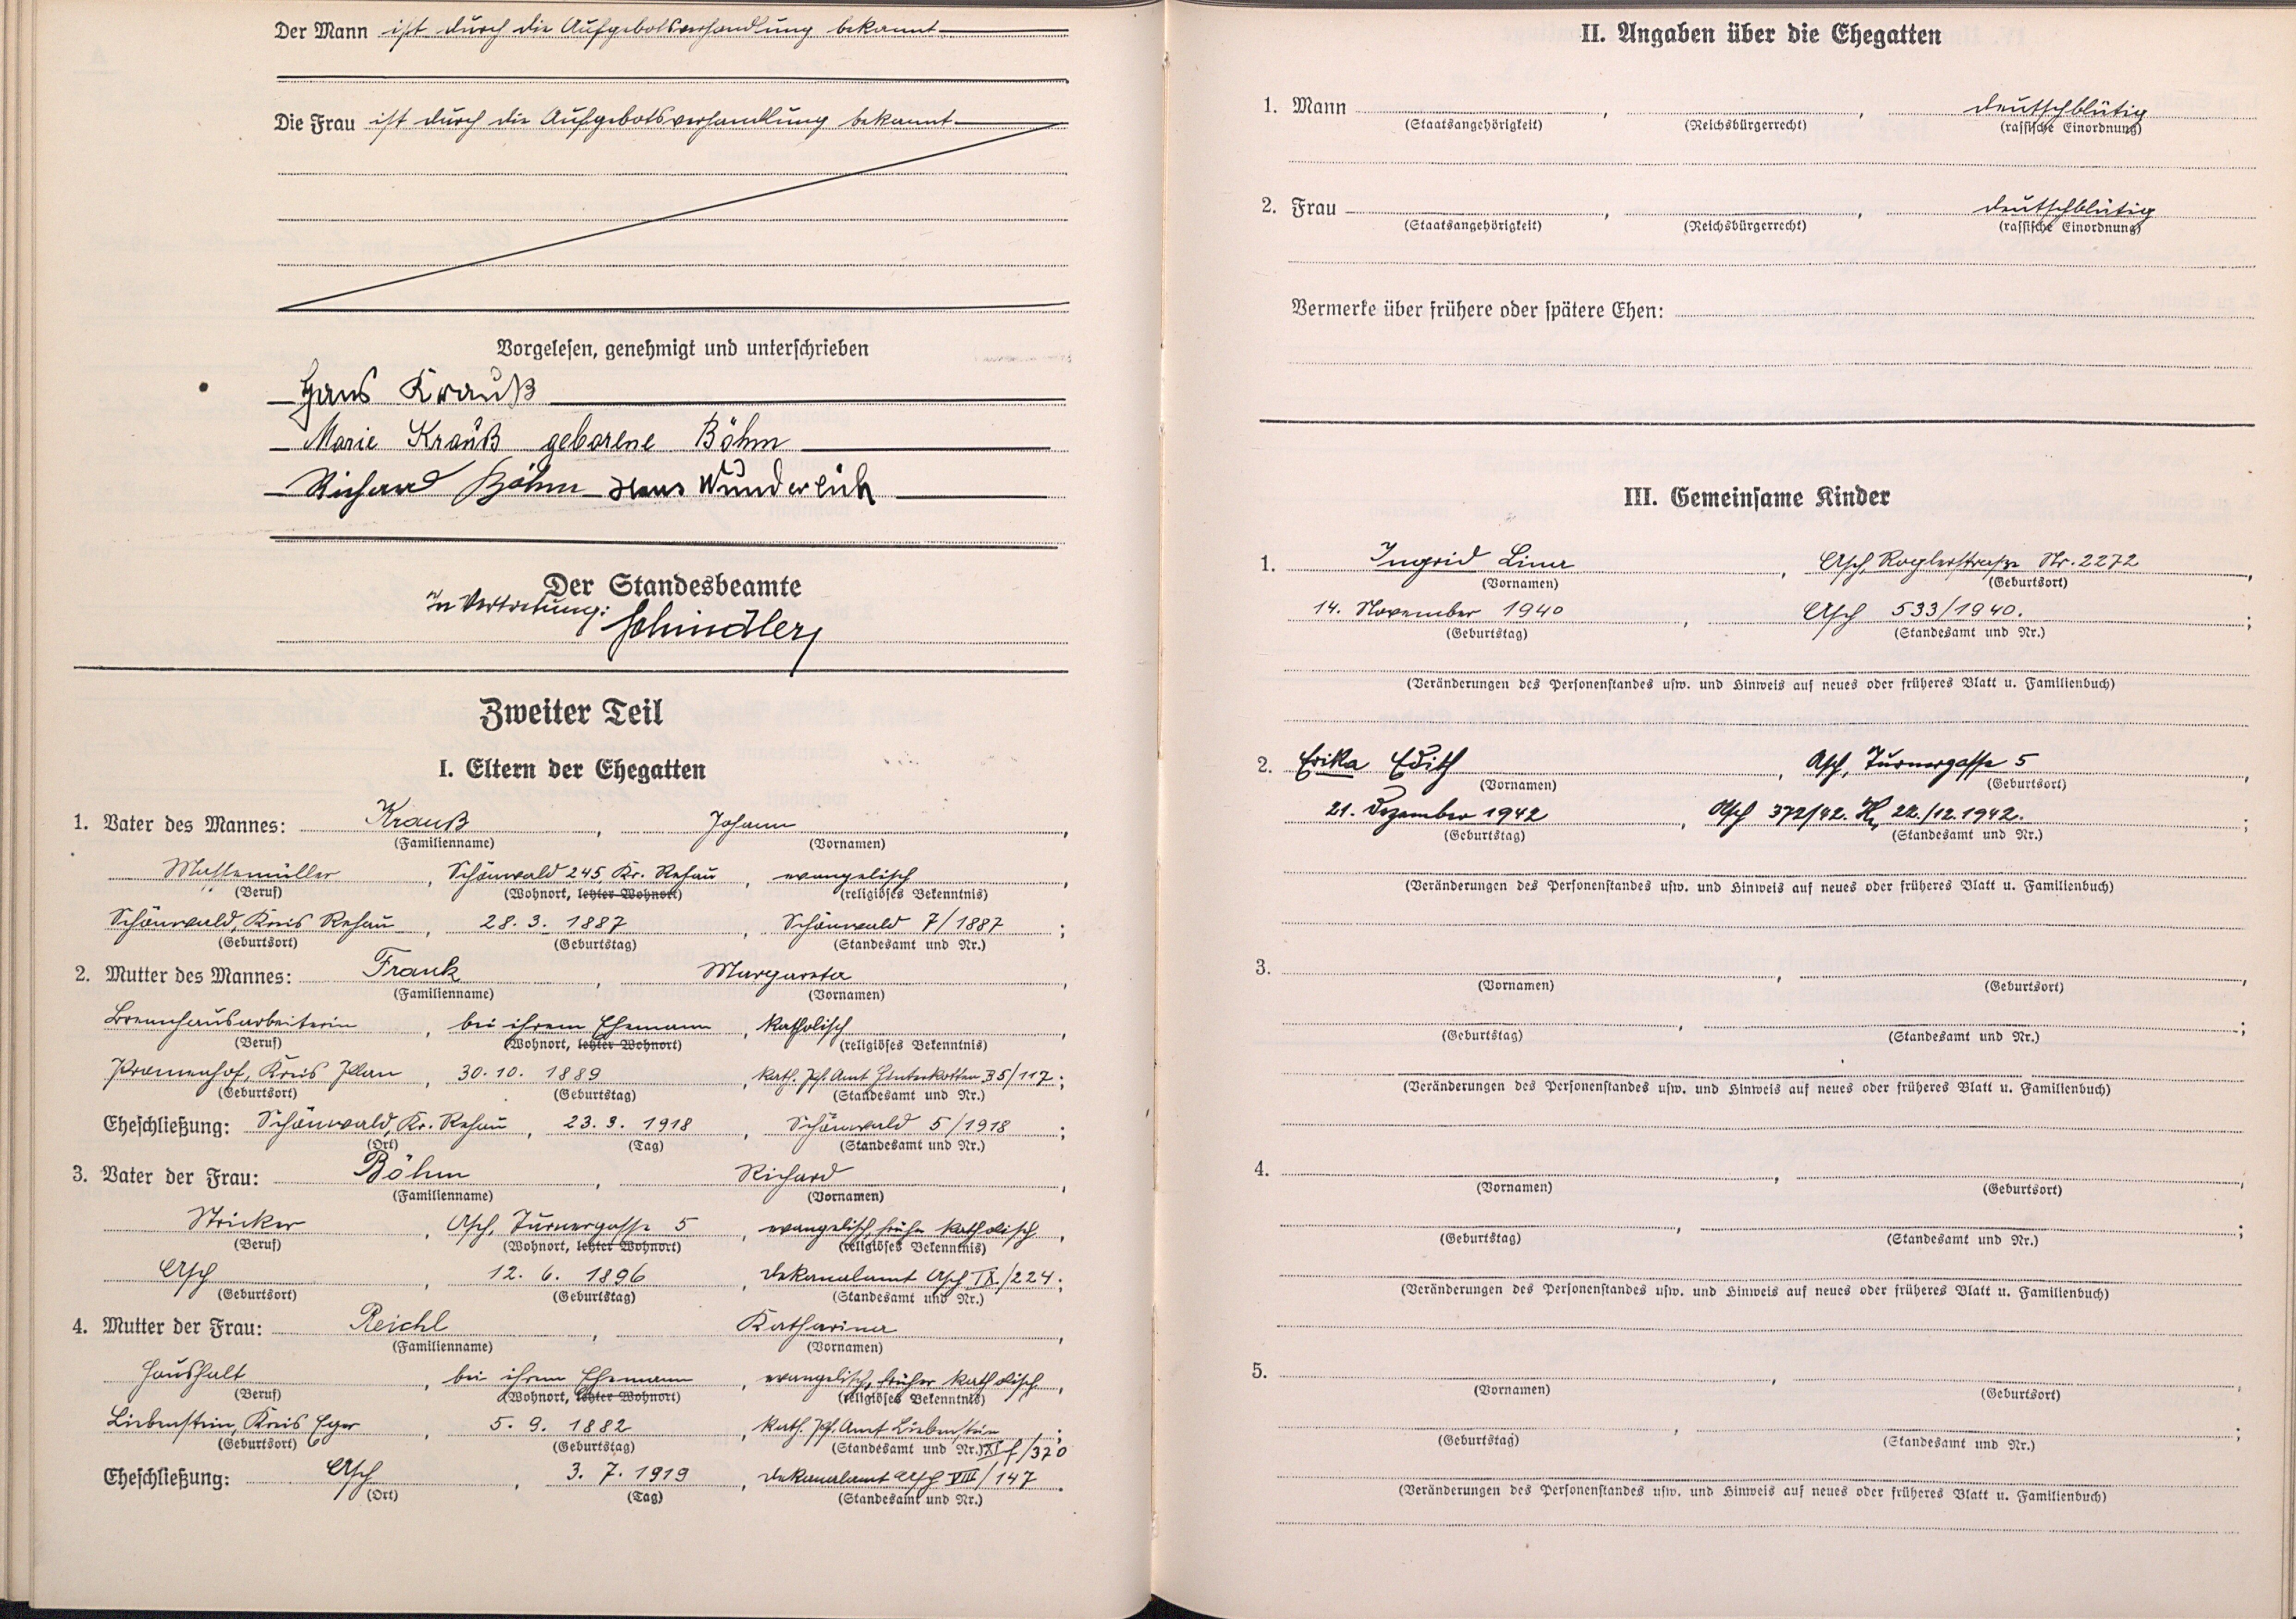 Der Mann ist durch die Aufgebotsverhandlung bekannt
Die Frau ist durch die Aufgebotsverhandlung bekannt
Vorgelesen, genehmigt und unterschrieben
Hans Krauß
Marie Krauß geborene Böhm
Richard Böhm Hans Wunderlich
Der Standesbeamte
In Vertretung: Schindler
Zweiter Teil
I. Eltern der Ehegatten
1. Vater des Mannes: Krauß, Johann,
(Familienname) (Vornamen)
Massemüller, Schönwald 245, Kr. Rehau, evangelisch,
(Beruf) (Wohnort, letzter Wohnort) (religiöses Bekenntnis)
Schönwald, Kreis Rehau, 28. 3. 1887, Schönwald 7/1887;
(Geburtsort) (Geburtstag) (Standesamt und Nr.)
2. Mutter des Mannes: Frank, Margareta,
(Familienname) (Vornamen)
Brennhausarbeiterin, bei ihrem Ehemann, katholisch,
(Beruf) (Wohnort, letzter Wohnort) (religiöses Bekenntnis)
Promenhof, Kreis Plan, 30. 10. 1889, kath. Pf. Amt Hinterkotten 35/117;
(Geburtsort) (Geburtstag) (Standesamt und Nr.)
Eheschließung: Schönwald, Kr. Rehau, 23. 3. 1918, Schönwald 5/1918;
(Ort) (Tag) (Standesamt und Nr.)
3. Vater der Frau: Böhm, Richard,
(Familienname) (Vornamen)
Stricker, Asch, Turnergasse 5, evangelisch, früher katholisch,
(Beruf) (Wohnort, letzter Wohnort) (religiöses Bekenntnis)
Asch, 12. 6. 1896, Dekanalamt Asch IX./224;
(Geburtsort) (Geburtstag) (Standesamt und Nr.)
4. Mutter der Frau: Reichl, Katharina,
(Familienname) (Vornamen)
Haushalt, bei ihrem Ehemann, evangelisch, früher katholisch,
(Beruf) (Wohnort, letzter Wohnort) (religiöses Bekenntnis)
Liebenstein, Kreis Eger, 5. 9. 1882, kath. Pf. Amt Liebenstein;
(Geburtsort) (Geburtstag) (Standesamt und Nr.) XI f/370
Eheschließung: Asch, 3. 7. 1919, Dekanalamt Asch VIII/147.
(Ort) (Tag) (Standesamt und Nr.)
II. Angaben über die Ehegatten
1. Mann , , deutschblütig
(Staatsangehörigkeit) (Reichsbürgerrecht) (rassische Einordnung)
2. Frau , , deutschblütig
(Staatsangehörigkeit) (Reichsbürgerrecht) (rassische Einordnung)
Vermerke über frühere oder spätere Ehen:
III. Gemeinsame Kinder
1. Ingrid Lina, Asch, Roglerstraße Nr. 2272,
(Vornamen) (Geburtsort)
14. November 1940, Asch 533/1940.;
(Geburtstag) (Standesamt und Nr.)
(Veränderungen des Personenstandes usw. und Hinweis auf neues oder früheres Blatt u. Familienbuch)
2. Erika Edith, Asch, Turnergasse 5,
(Vornamen) (Geburtsort)
21. Dezember 1942, Asch 372/42. 22./12.1942.;
(Geburtstag) (Standesamt und Nr.)
(Veränderungen des Personenstandes usw. und Hinweis auf neues oder früheres Blatt u. Familienbuch)
3. , ,
(Vornamen) (Geburtsort)
, ;
(Geburtstag) (Standesamt und Nr.)
(Veränderungen des Personenstandes usw. und Hinweis auf neues oder früheres Blatt u. Familienbuch)
4. , ,
(Vornamen) (Geburtsort)
, ;
(Geburtstag) (Standesamt und Nr.)
(Veränderungen des Personenstandes usw. und Hinweis auf neues oder früheres Blatt u. Familienbuch)
5. , ,
(Vornamen) (Geburtsort)
, ;
(Geburtstag) (Standesamt und Nr.)
(Veränderungen des Personenstandes usw. und Hinweis auf neues oder früheres Blatt u. Familienbuch)